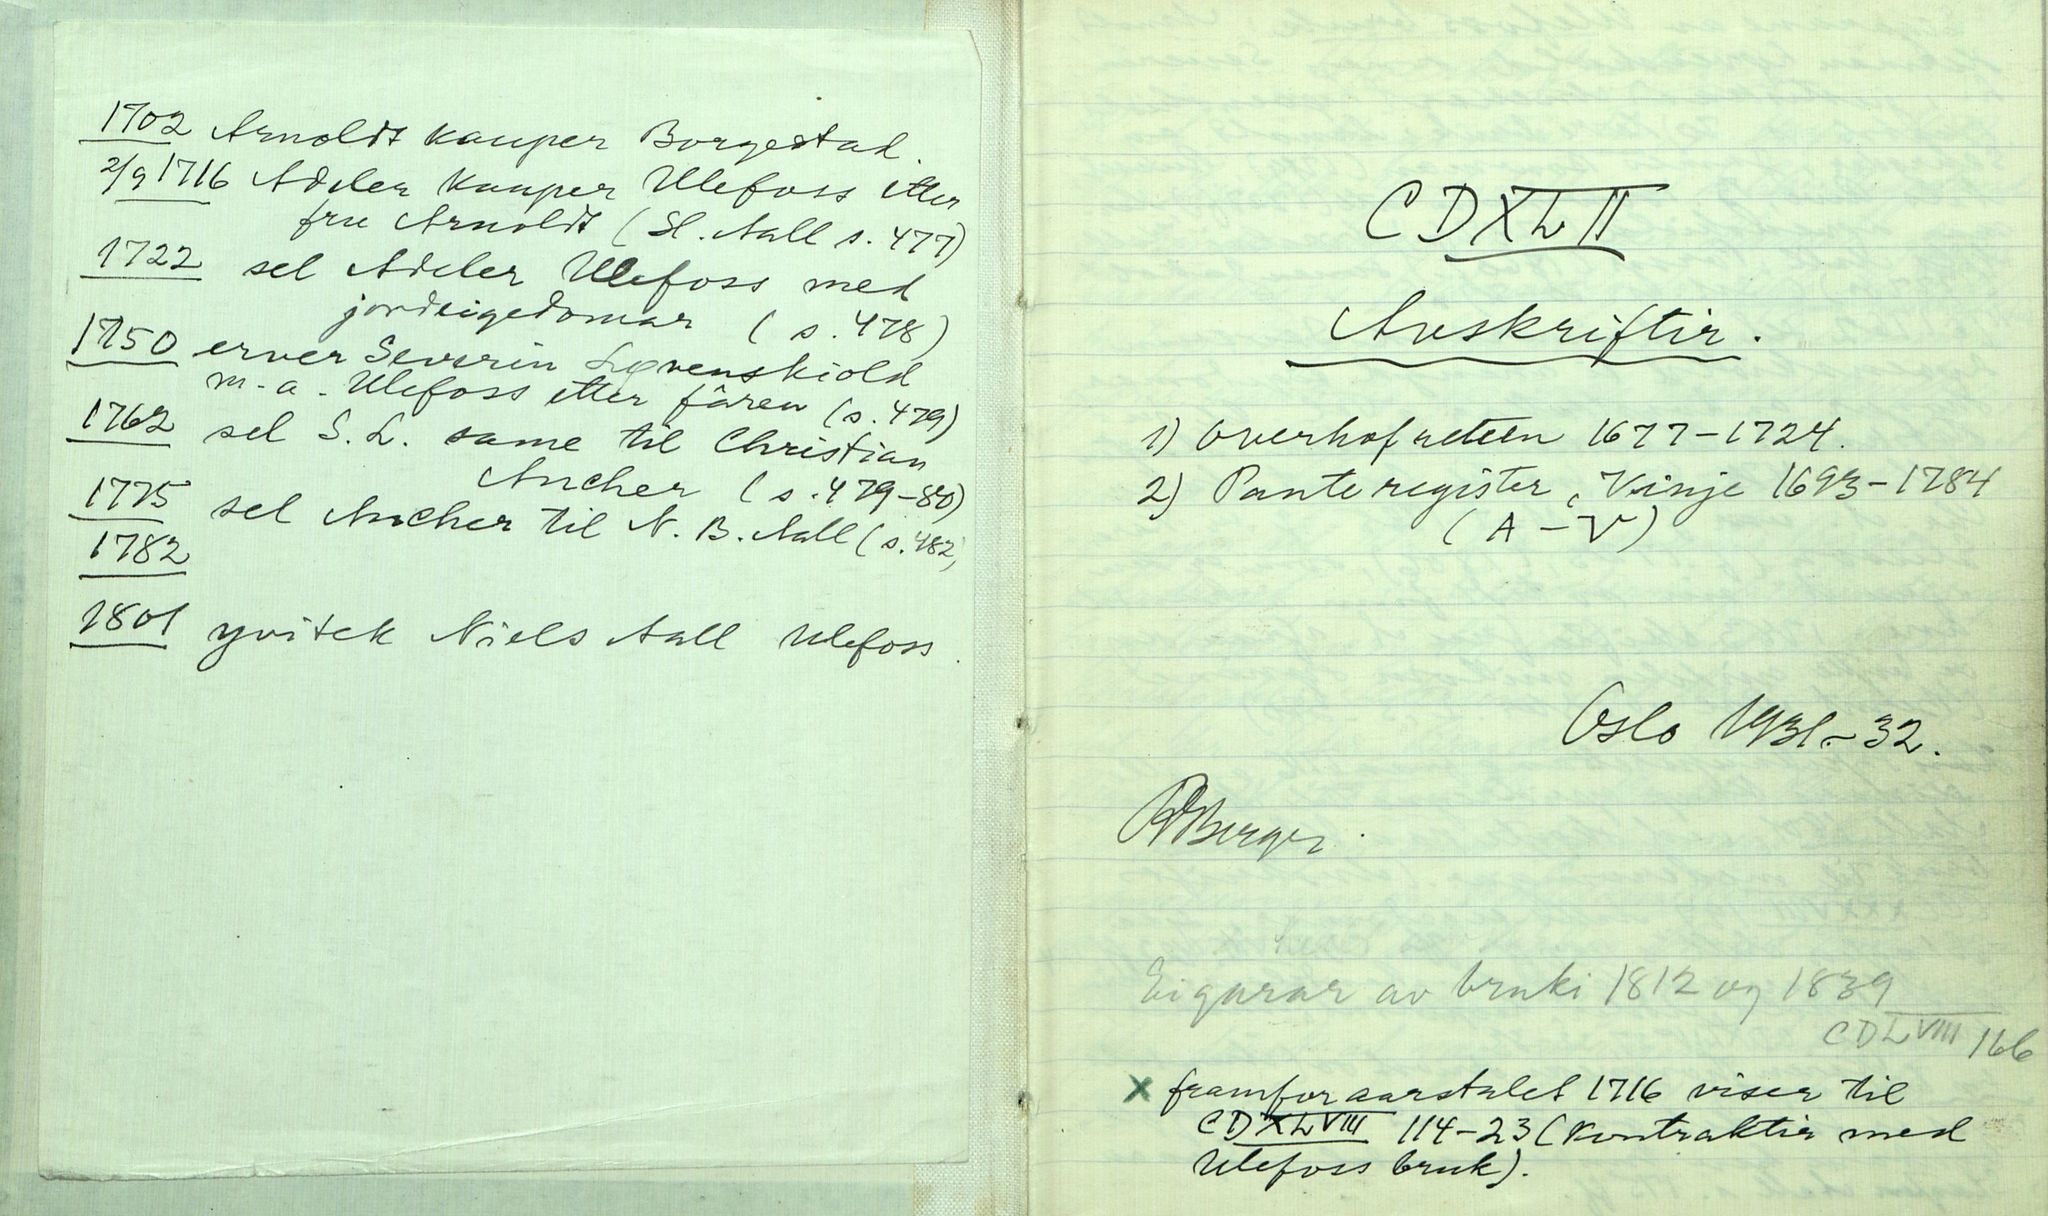 1702 Arnoldt kauper Borgestad.
2/9 1716 Adeler kauper Ulefoss etter
fru Arnoldt (Sl. Aall s. 477)
1722 sel Adeler Ulefoss med
jordeigedomar (s. 478)
1750 erver Severin Løvenskiold
m.a. Ulefoss etter fåren (s. 479)
1762 sel S. L. same til Christian
Ancher (s. 479-80)
1775 sel Ancher til N. B. Aall (s. 482)
1782
1801 yvitek Niels Aall Ulefoss.
CDXLII
Avskriftir.
1) Overhofretten 1677-1724.
2) Panteregister, Vinje 1693-1784
(A-V)
Oslo 1931-32.
RBerge.
Eigarar av bruki 1812 og 1839
CDLVIII 166
x framfor aarstalet 1716 viser til
CDXLVIII 114-23 (Kontraktir med
Ulefoss bruk).